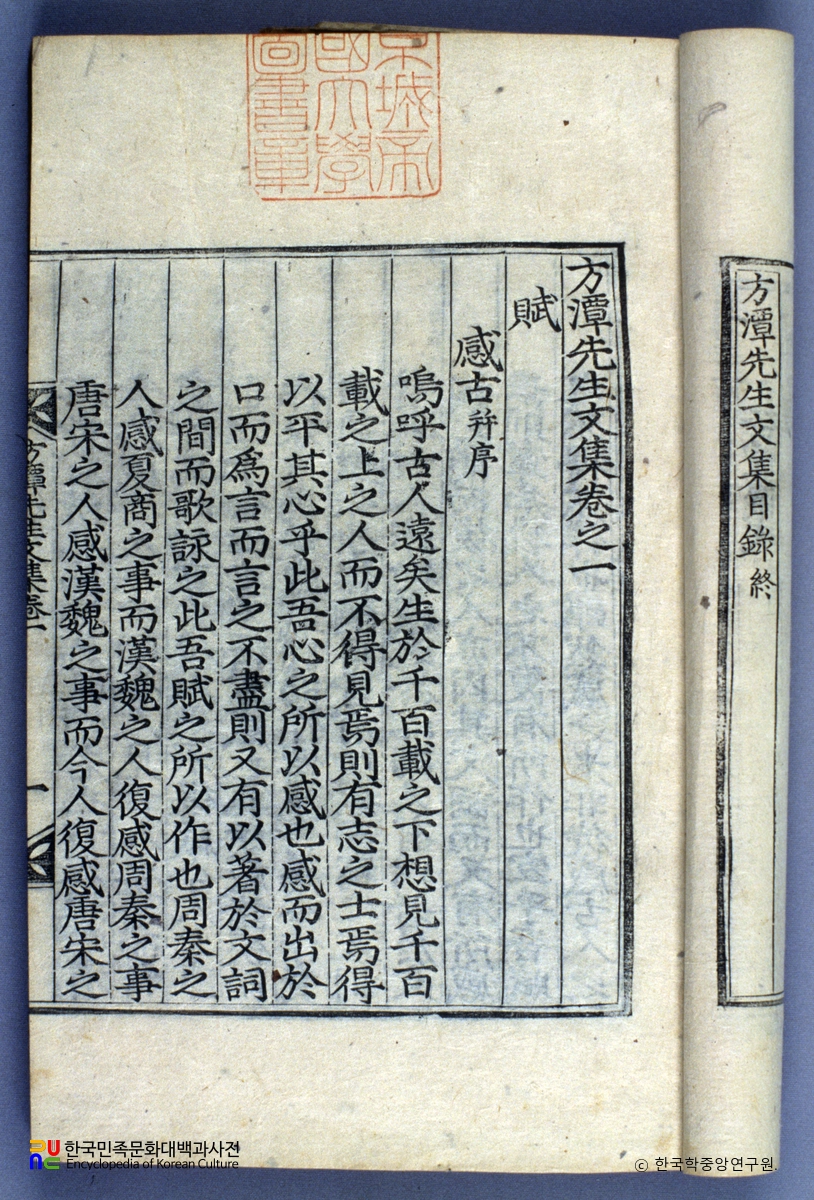 方潭先生文集目錄終
京城帝
國大學
圖書章
方潭先生文集卷之一
賦
感古并序
嗚呼古人遠矣生於千百載之下想見千百
載之上之人而不得見焉則有志之士焉得
以平其心乎此吾心之所以感也感而出於
口而爲言而言之不盡則又有以著於文詞
之間而歌詠之此吾賦之所以作也周秦之
人感夏商之事而漢魏之人復感周秦之事
唐宋之人感漢魏之事而今人復感唐宋之
方潭先生文集卷一
一
한국민족문화대백과사전
Encyclopedia of Korean Culture
© 한국학중앙연구원